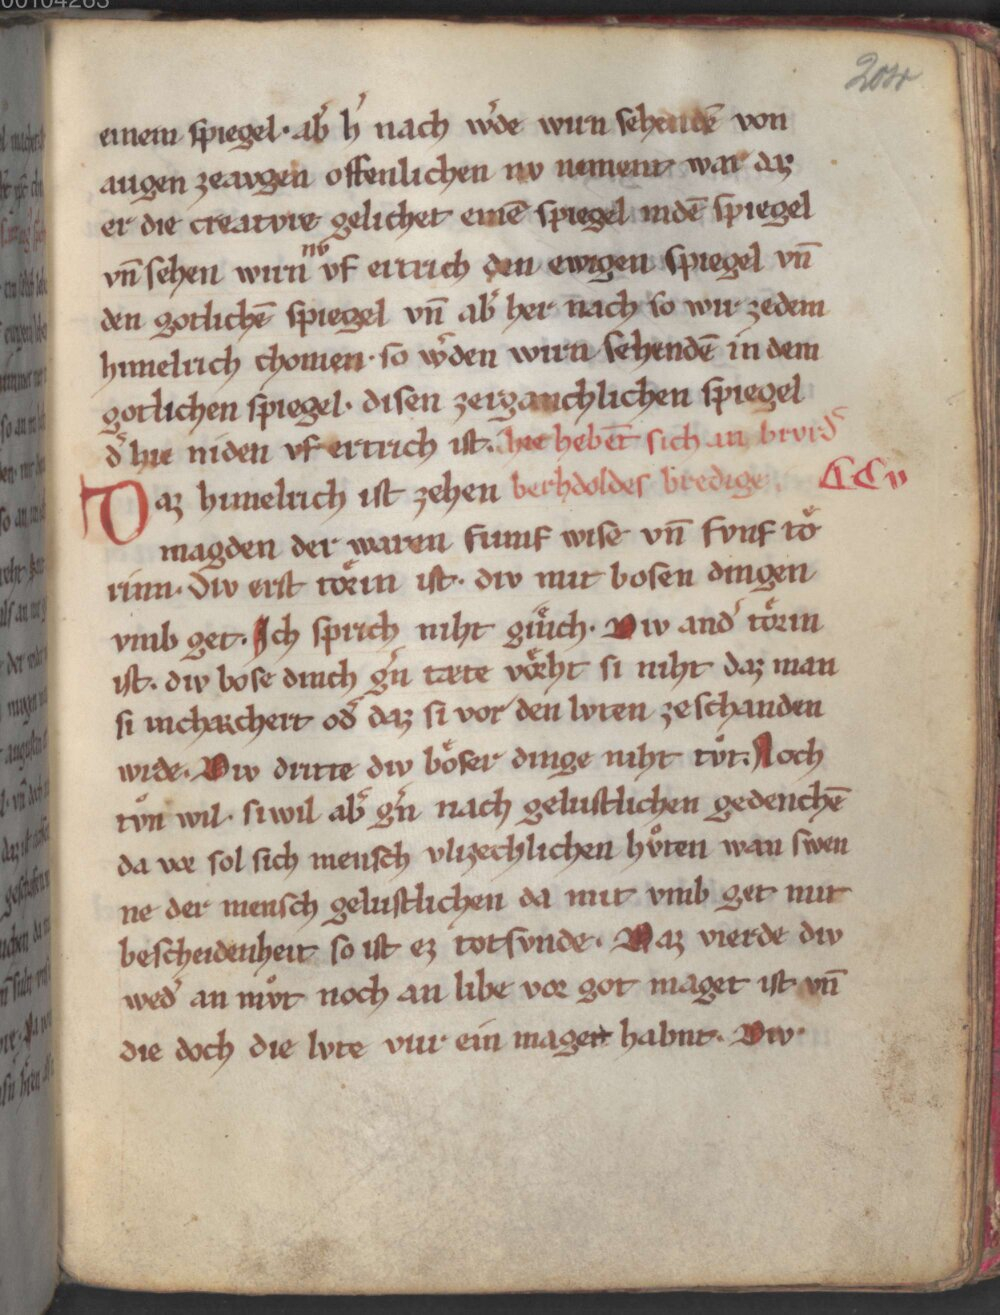 einem spiegel · ab̛ h̛ nach w̛de wirn sehendē von
augen zeavgen offenlichen nv nement war daz
er die creatvre gelichet einē spiegel indē spiegel
vn̄ sehen wirn nv vf ertrich den ewigen spiegel vn̄
den gotlichē spiegel vn̄ ab̛ her nach so wir zedem
himelrich chomen · so w̛den wirn sehendē in dem
gotlichen spiegel · disen zerganchlichen spiegel
d̛ hie niden vf ertrich ist. hie hebet sich an brvd̛
Daz himelrich ist zehen berhdoldes bredige. CCv
magden der waren fumf wise vn̄ fvnf to
rinn · Div erst toͤrin ist · div mit bosen dingen
vmb get. Ich sprich niht giuͤch · Div and̛ toͤrin
ist · div bose dinch g̛n tæte voͤrht si niht daz man
si incharchert od̛ daz si vor den lvten zeschanden
wrde. Div dritte div boͤser dinge niht tvͦt. Noch
tvͦn wil · si wil ab̛ g̛n nach gelustlichen gedenchē
da vor sol sich mensch vlizechlichen hvͤten wan swen
ne der mensch gelustlichen da mit vmb get mit
bescheidenheit so ist ez totsvnde. Daz vierde div
wed̛ an mvͦt noch an libe vor got maget ist vn̄
die doch die lvte vur ein maget habnt. Div